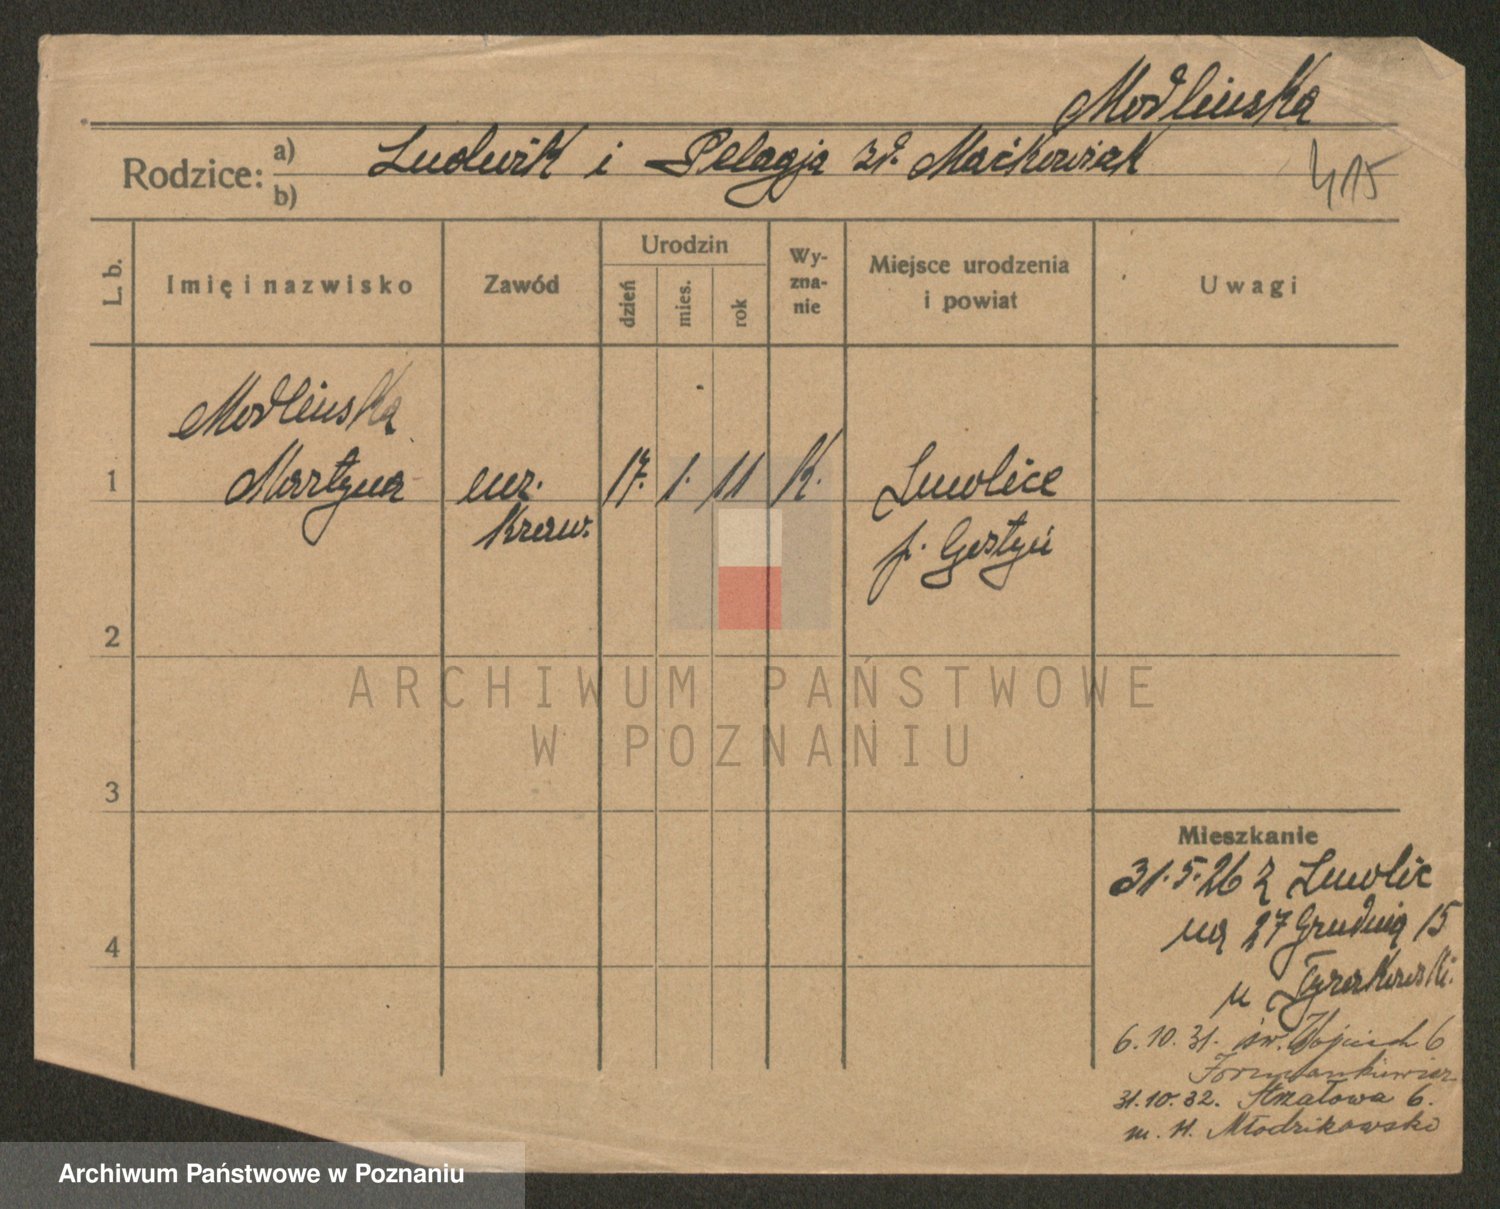 Modlinska
Rodzice: a) Ludwik i Pelagja zd. Maćkowiak
b)
415
L. b.
Imię i nazwisko
Zawód
Urodzin
dzień
mies.
rok
Wy-
zna-
nie
Miejsce urodzenia
i powiat
Uwagi
1
Modlinska
Martyna
ucz.
Kraw.
17. 1. 11
K.
Smolice
p. Gostyń
2
3
4
Mieszkanie
31.5.26 z Smolic
na 27 Grudnia 15
u
6.10.31. św. Wojciech 6
31.10.32. Strzałowa 6.
m. 11. Młodzikowski
ARCHIWUM PAŃSTWOWE
W POZNANIU
Archiwum Państwowe w Poznaniu